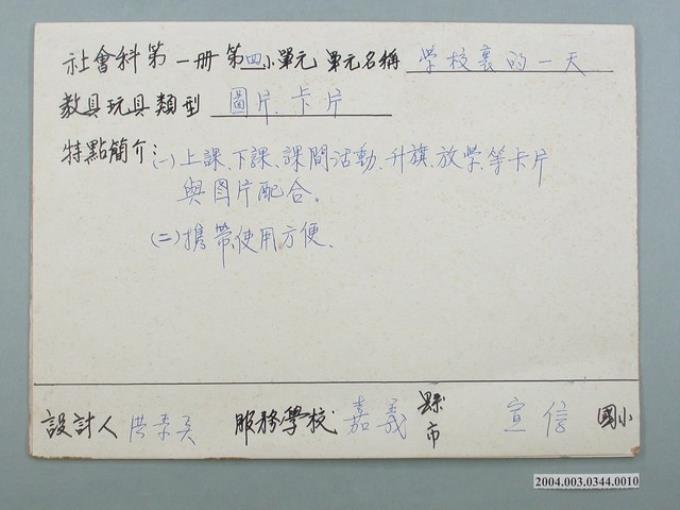 社會科第一冊第四小單元 單元名稱 學校裏的一天
教具玩具類型 圖片、卡片
特點簡介:(一)上課、下課、課間活動、升旗、放學、等卡片
與图片配合。
(二)攜帶、使用方便.
設計人 洪 服務學校 嘉義 縣市 宣信 國小
2004.003.0344.0010